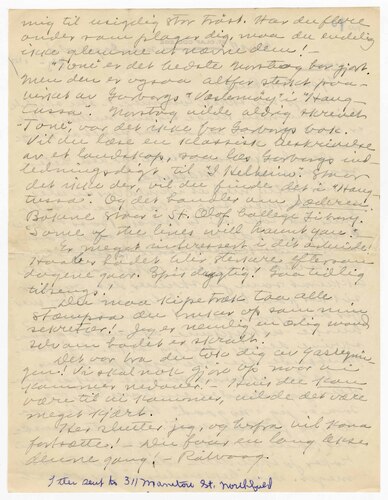 mig til usigelig stor Trøst. Har du flere
onder som plager dig, maa du endelig
ikke glemme at nævne dem! –
"Toné" er det bedste Norstog har gjort.
Men den er ogsaa altfor sterkt paa-
virket av Garborgs "Veslemøy" i "Haug-
tussa". Norstog vilde aldrig skrevet
"Tone", var det ikke for Garborgs bok.
Vil du læse en klassisk beskrivelse
av et landskap, saa læs Garborgs ind-
ledningsdigt til "I Helheim". Staar
det ikke der, vil du finde det i "Haug-
tussa". Og det handler om Jæderen.
Bøkene staar i St. Olaf College Library.
Some of the lines will haunt you. –
Er meget interessert i dit arbeide!
Haaber hodet blir sterkere eftersom
dagene gaar. Spis dygtig! Gaa tidlig
tilsengs!
Du maa kipe trak taa alle
stæmpsa du bruker op som min
sekretær! – Jeg er nemlig en ærlig mand
selv om bandet er skralt!
Det var bra du tok dig av Gasteyge-
gjen! Vi skal nok gjøre op naar vi
kommer nedover! – Hvis du kan
være til vi kommer, vilde det være
meget kjært.
Her slutter jeg, og herfra vil kona
fortsætte! – Du faar en lang økse
denne gang! – Rølvaag.
Iten sent to 311 Manitou St. Northfield